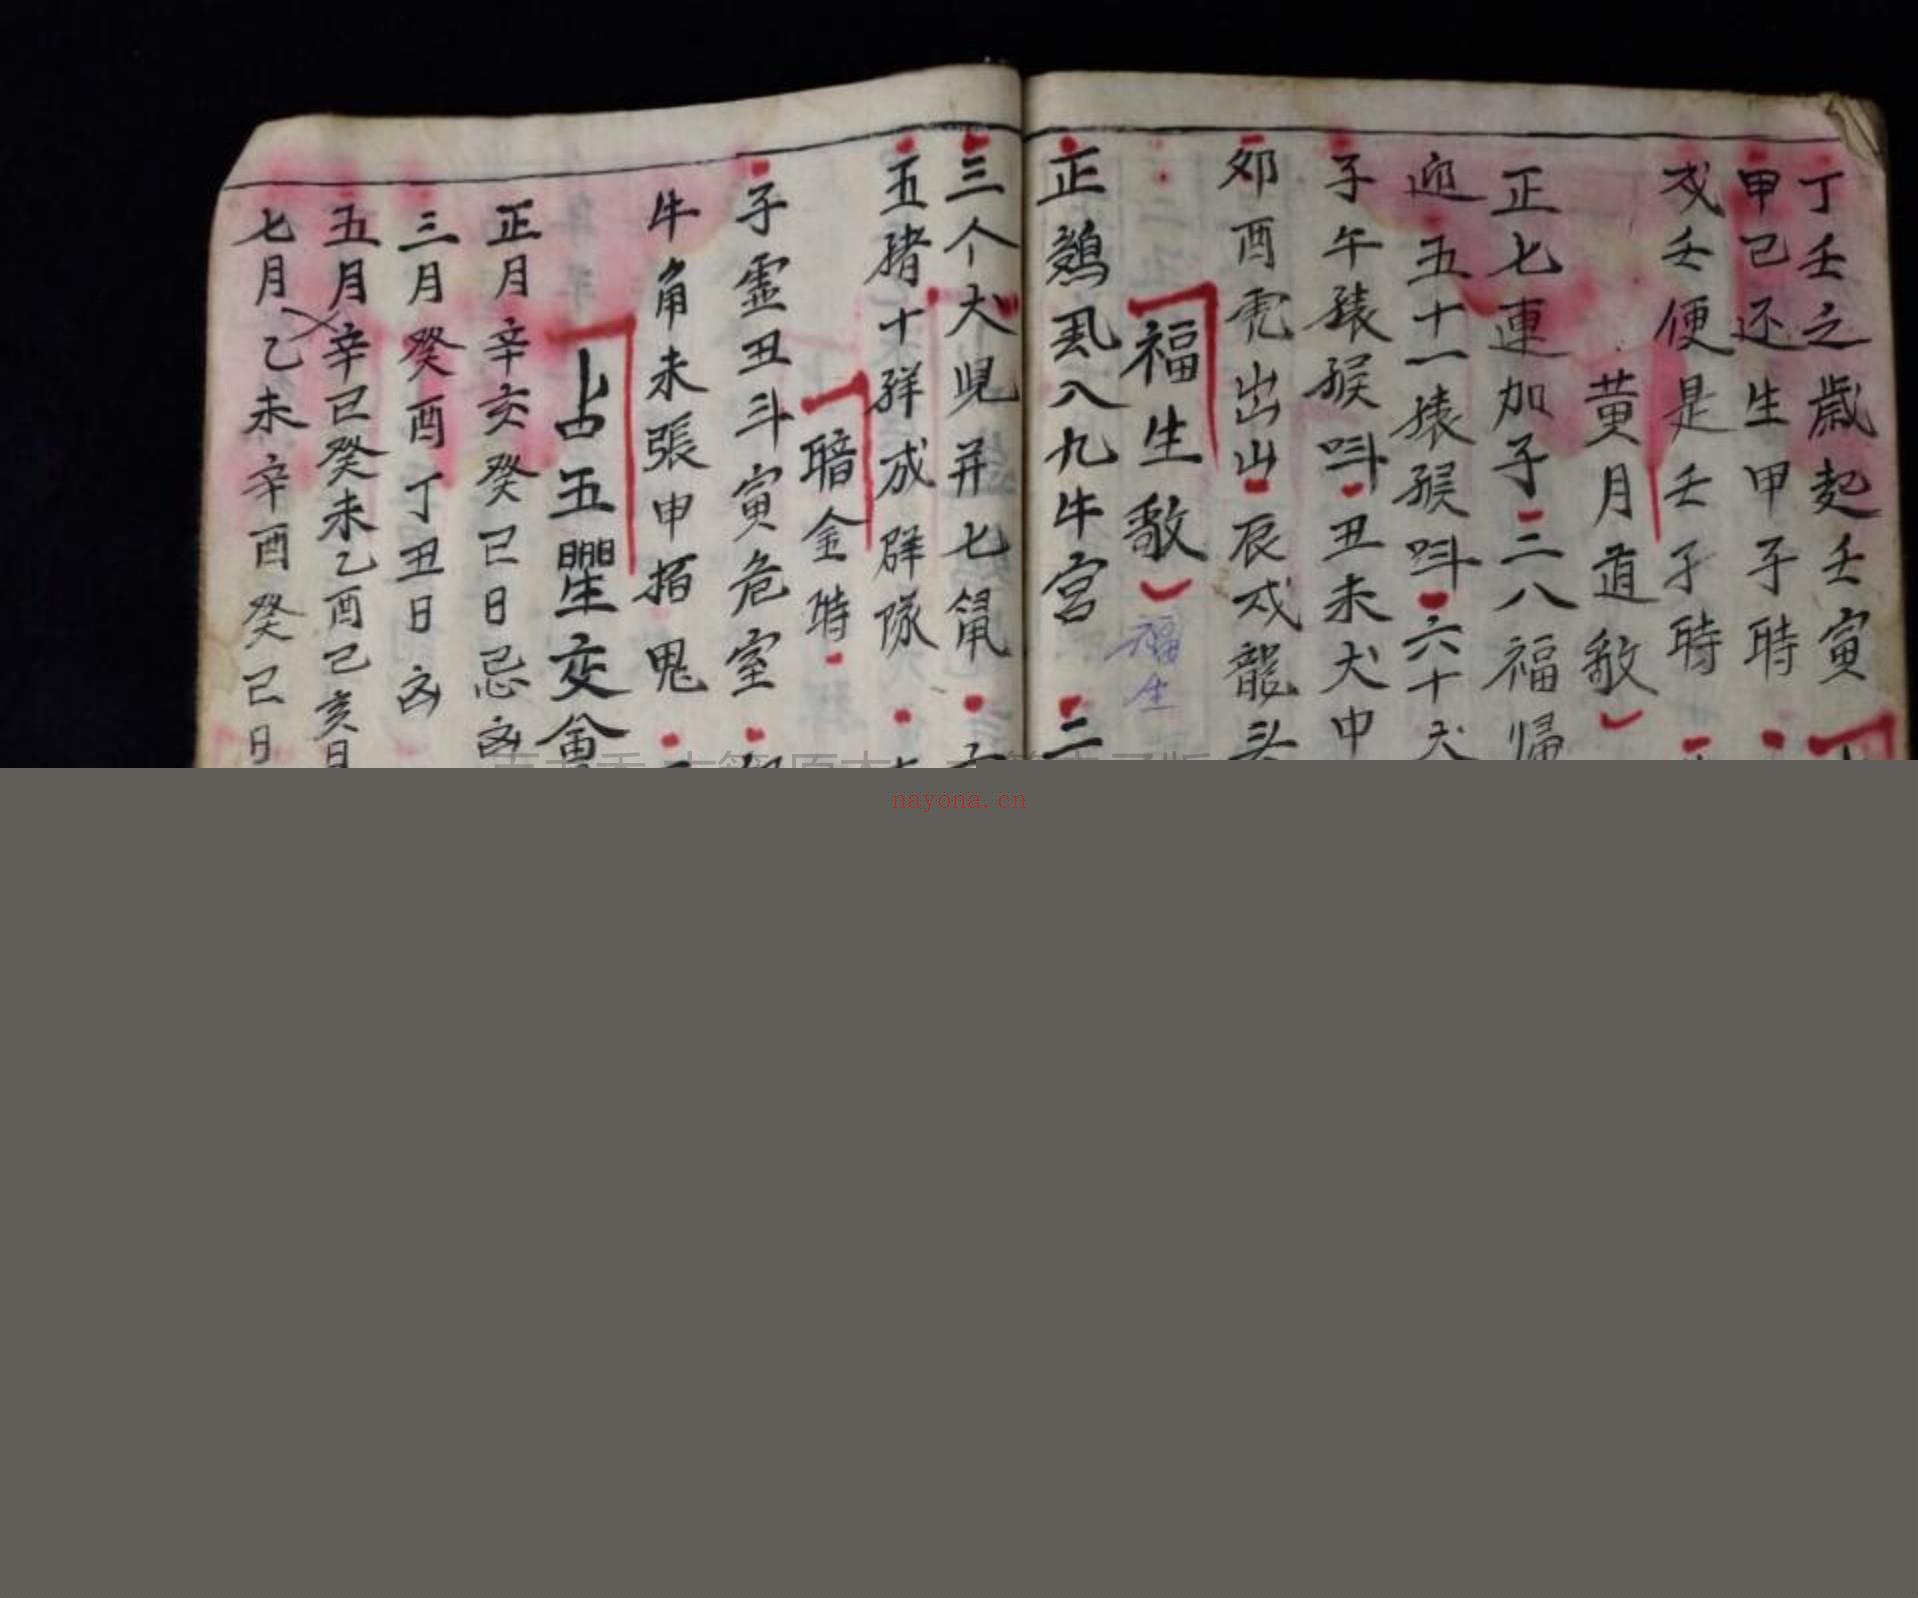 丁壬之歲起壬寅
甲己还生甲子時
戊壬便是壬子時
黄月道敨
正七連加子三八福帰
迎五十一猿猴呌六十犬
子午猿猴呌丑未犬中
邜酉虎出山辰戌龍头
福生敨
福生
正鷄風八九牛宮二
三个犬児并七鼠
五猪十羊成群隊
暗金時
子虚丑斗寅危室
牛角未張申招鬼
占五星交會
正月辛亥癸巳日忌凶
三月癸酉丁丑日凶
五月辛巳癸未乙酉己亥日
七月乙未辛酉癸己日
nayona.cn